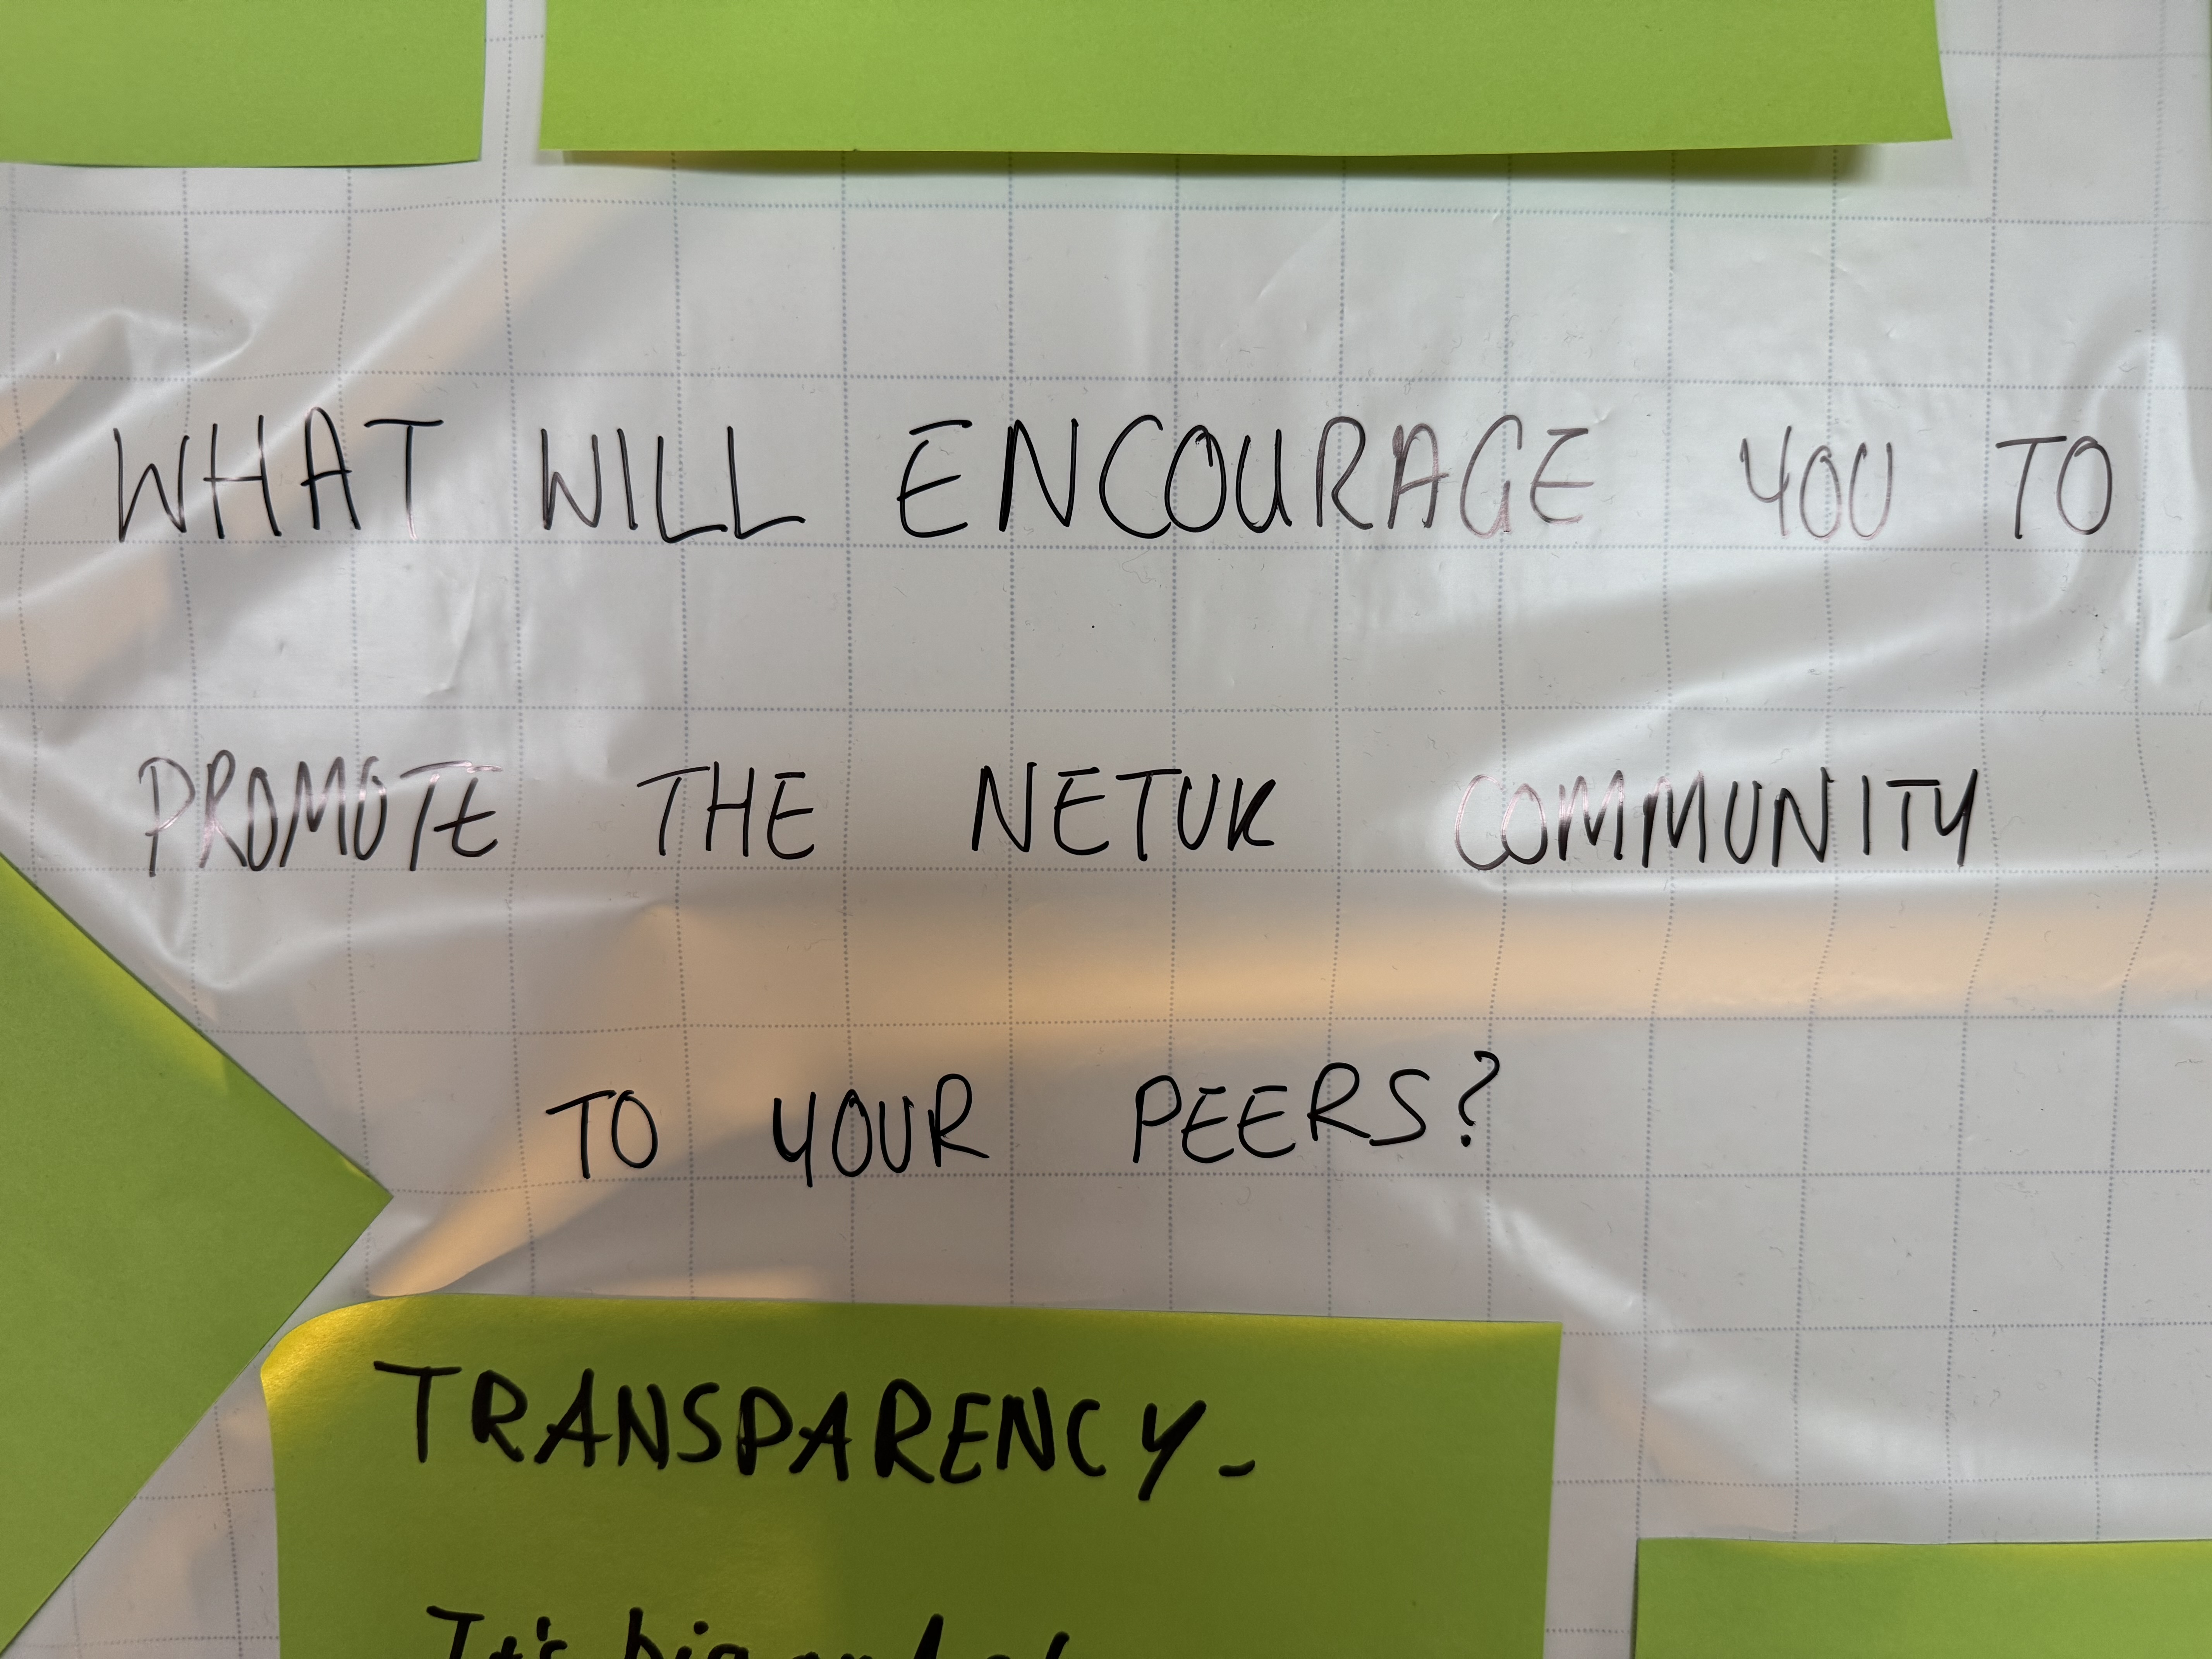 WHAT WILL ENCOURAGE YOU TO
PROMOTE THE NETUK COMMUNITY
TO YOUR PEERS?
TRANSPARENCY-
It's